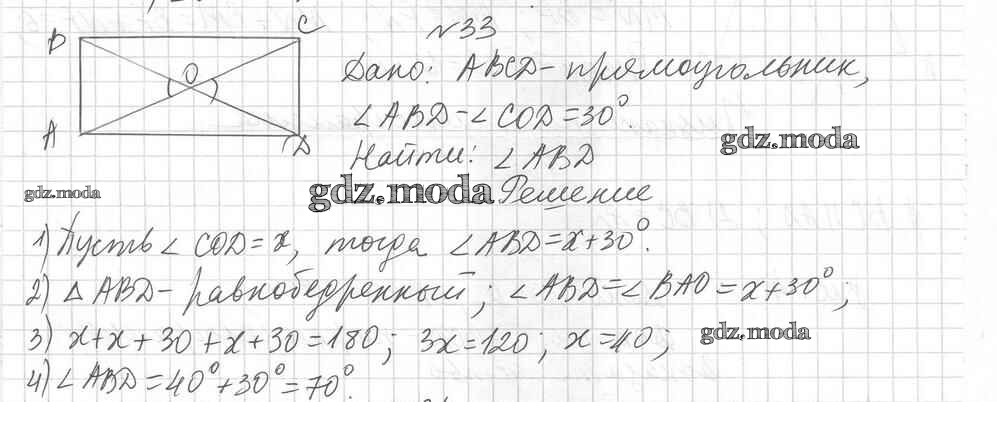 N33
B
C
O
A
D
Дано: ABCD - прямоугольник,
∠ABD - ∠COD = 30°.
gdz.moda
Найти: ∠ABD
gdz.moda
gdz.moda
Решение
1) Пусть ∠COD = x, тогда ∠ABD = x + 30°.
2) △ABD - равнобедренный; ∠ABD = ∠BAO = x + 30°;
3) x + x + 30 + x + 30 = 180; 3x = 120; x = 40;
gdz.moda
4) ∠ABD = 40° + 30° = 70°.